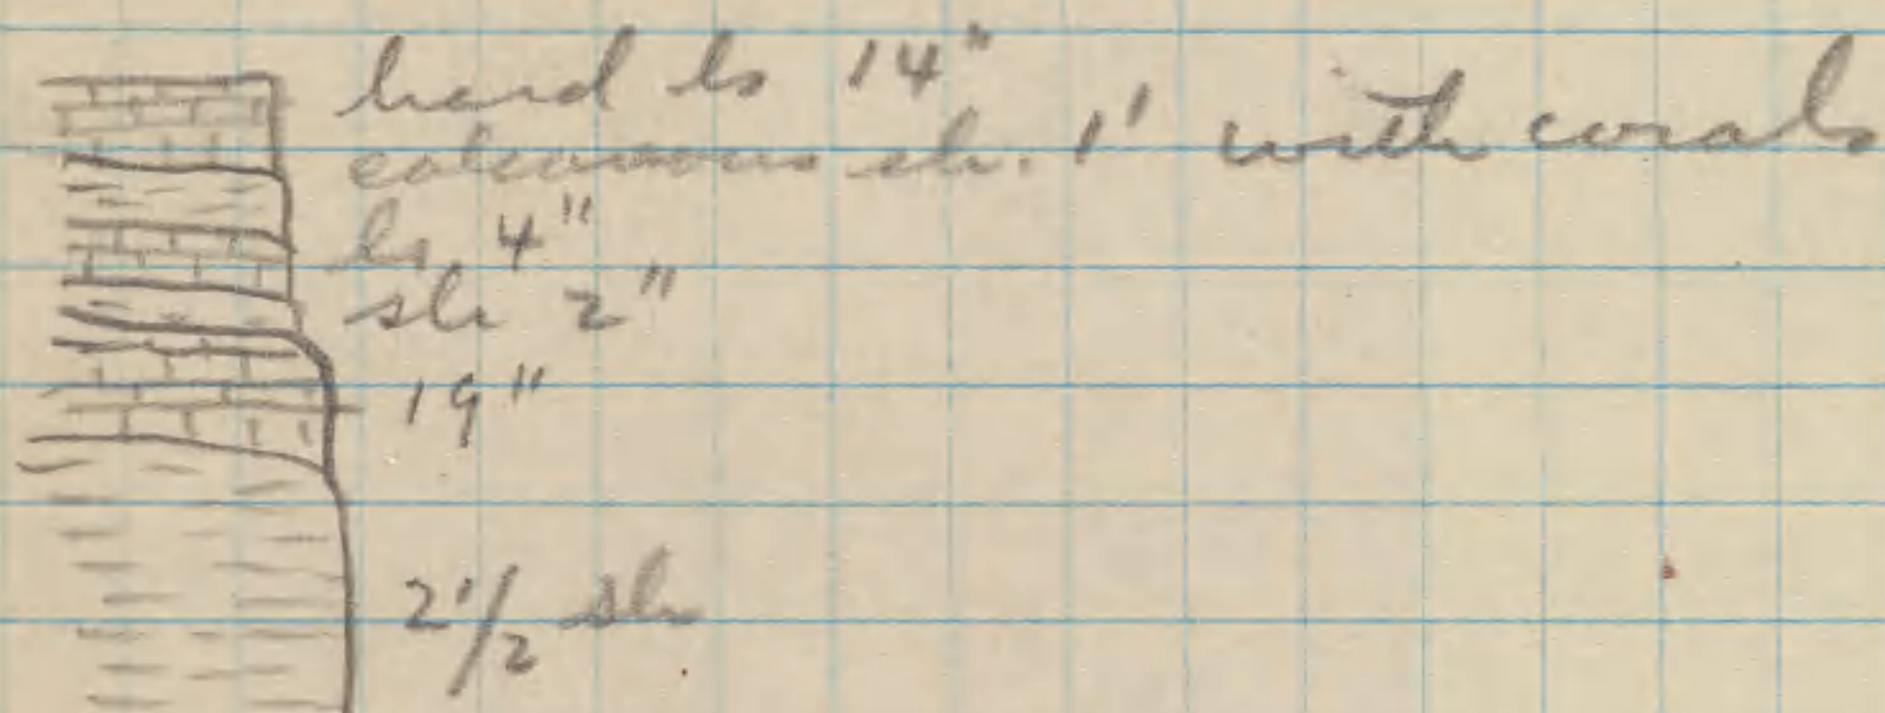 hard ls 14"
calcareous sh. 1' with corals
ls 4"
sh 2"
19"
2 1/2 sh